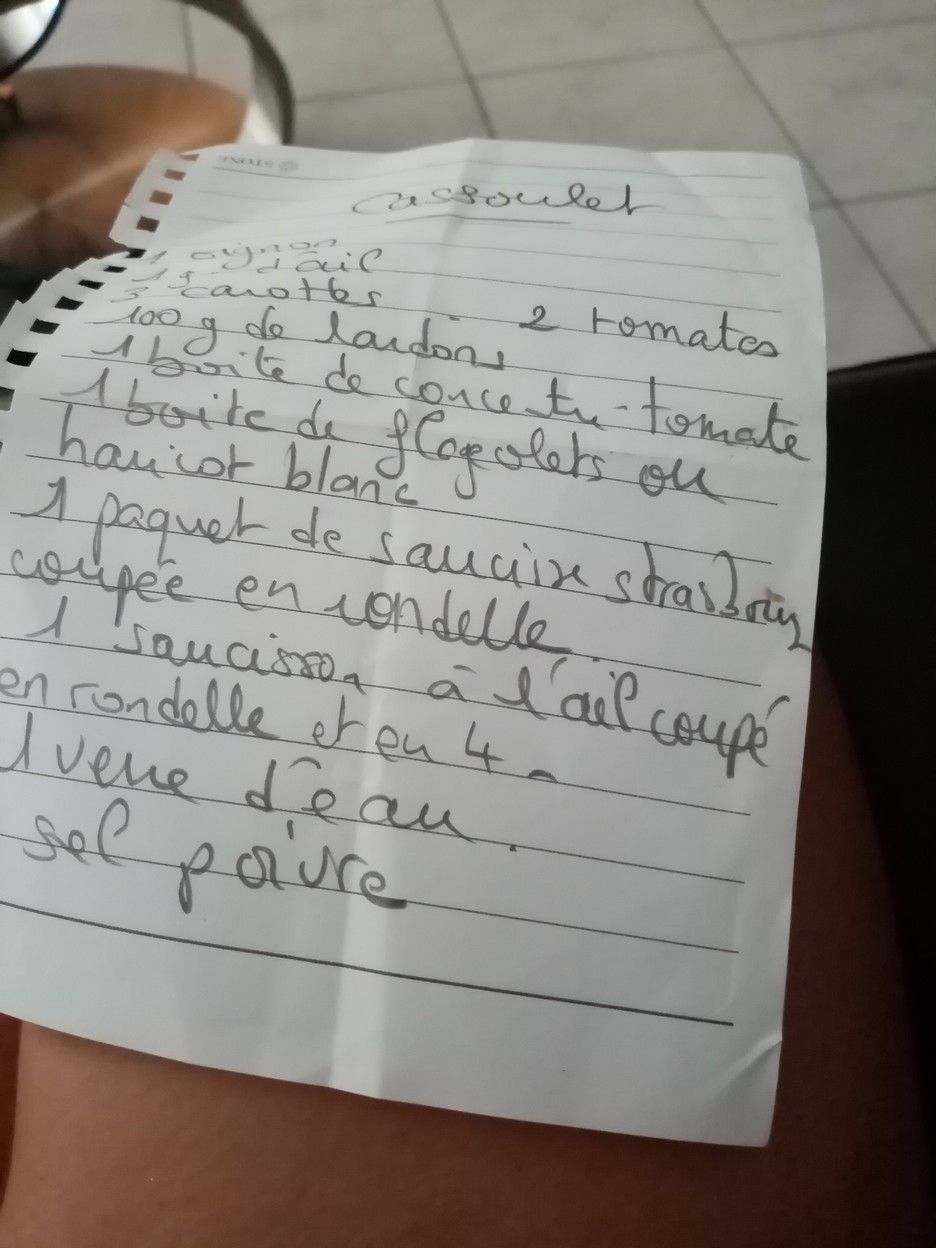 cassoulet
1 oignon
1 g d'ail
3 carottes
2 tomates
100 g de lardons
1 boite de conce tu-tomate
1 boite de flageolets ou
haricot blanc
1 paquet de saucisse strasbourg
coupée en rondelle
1 saucisson à l'ail coupé
en rondelle et en 4
1 verre d'eau.
sel poivre